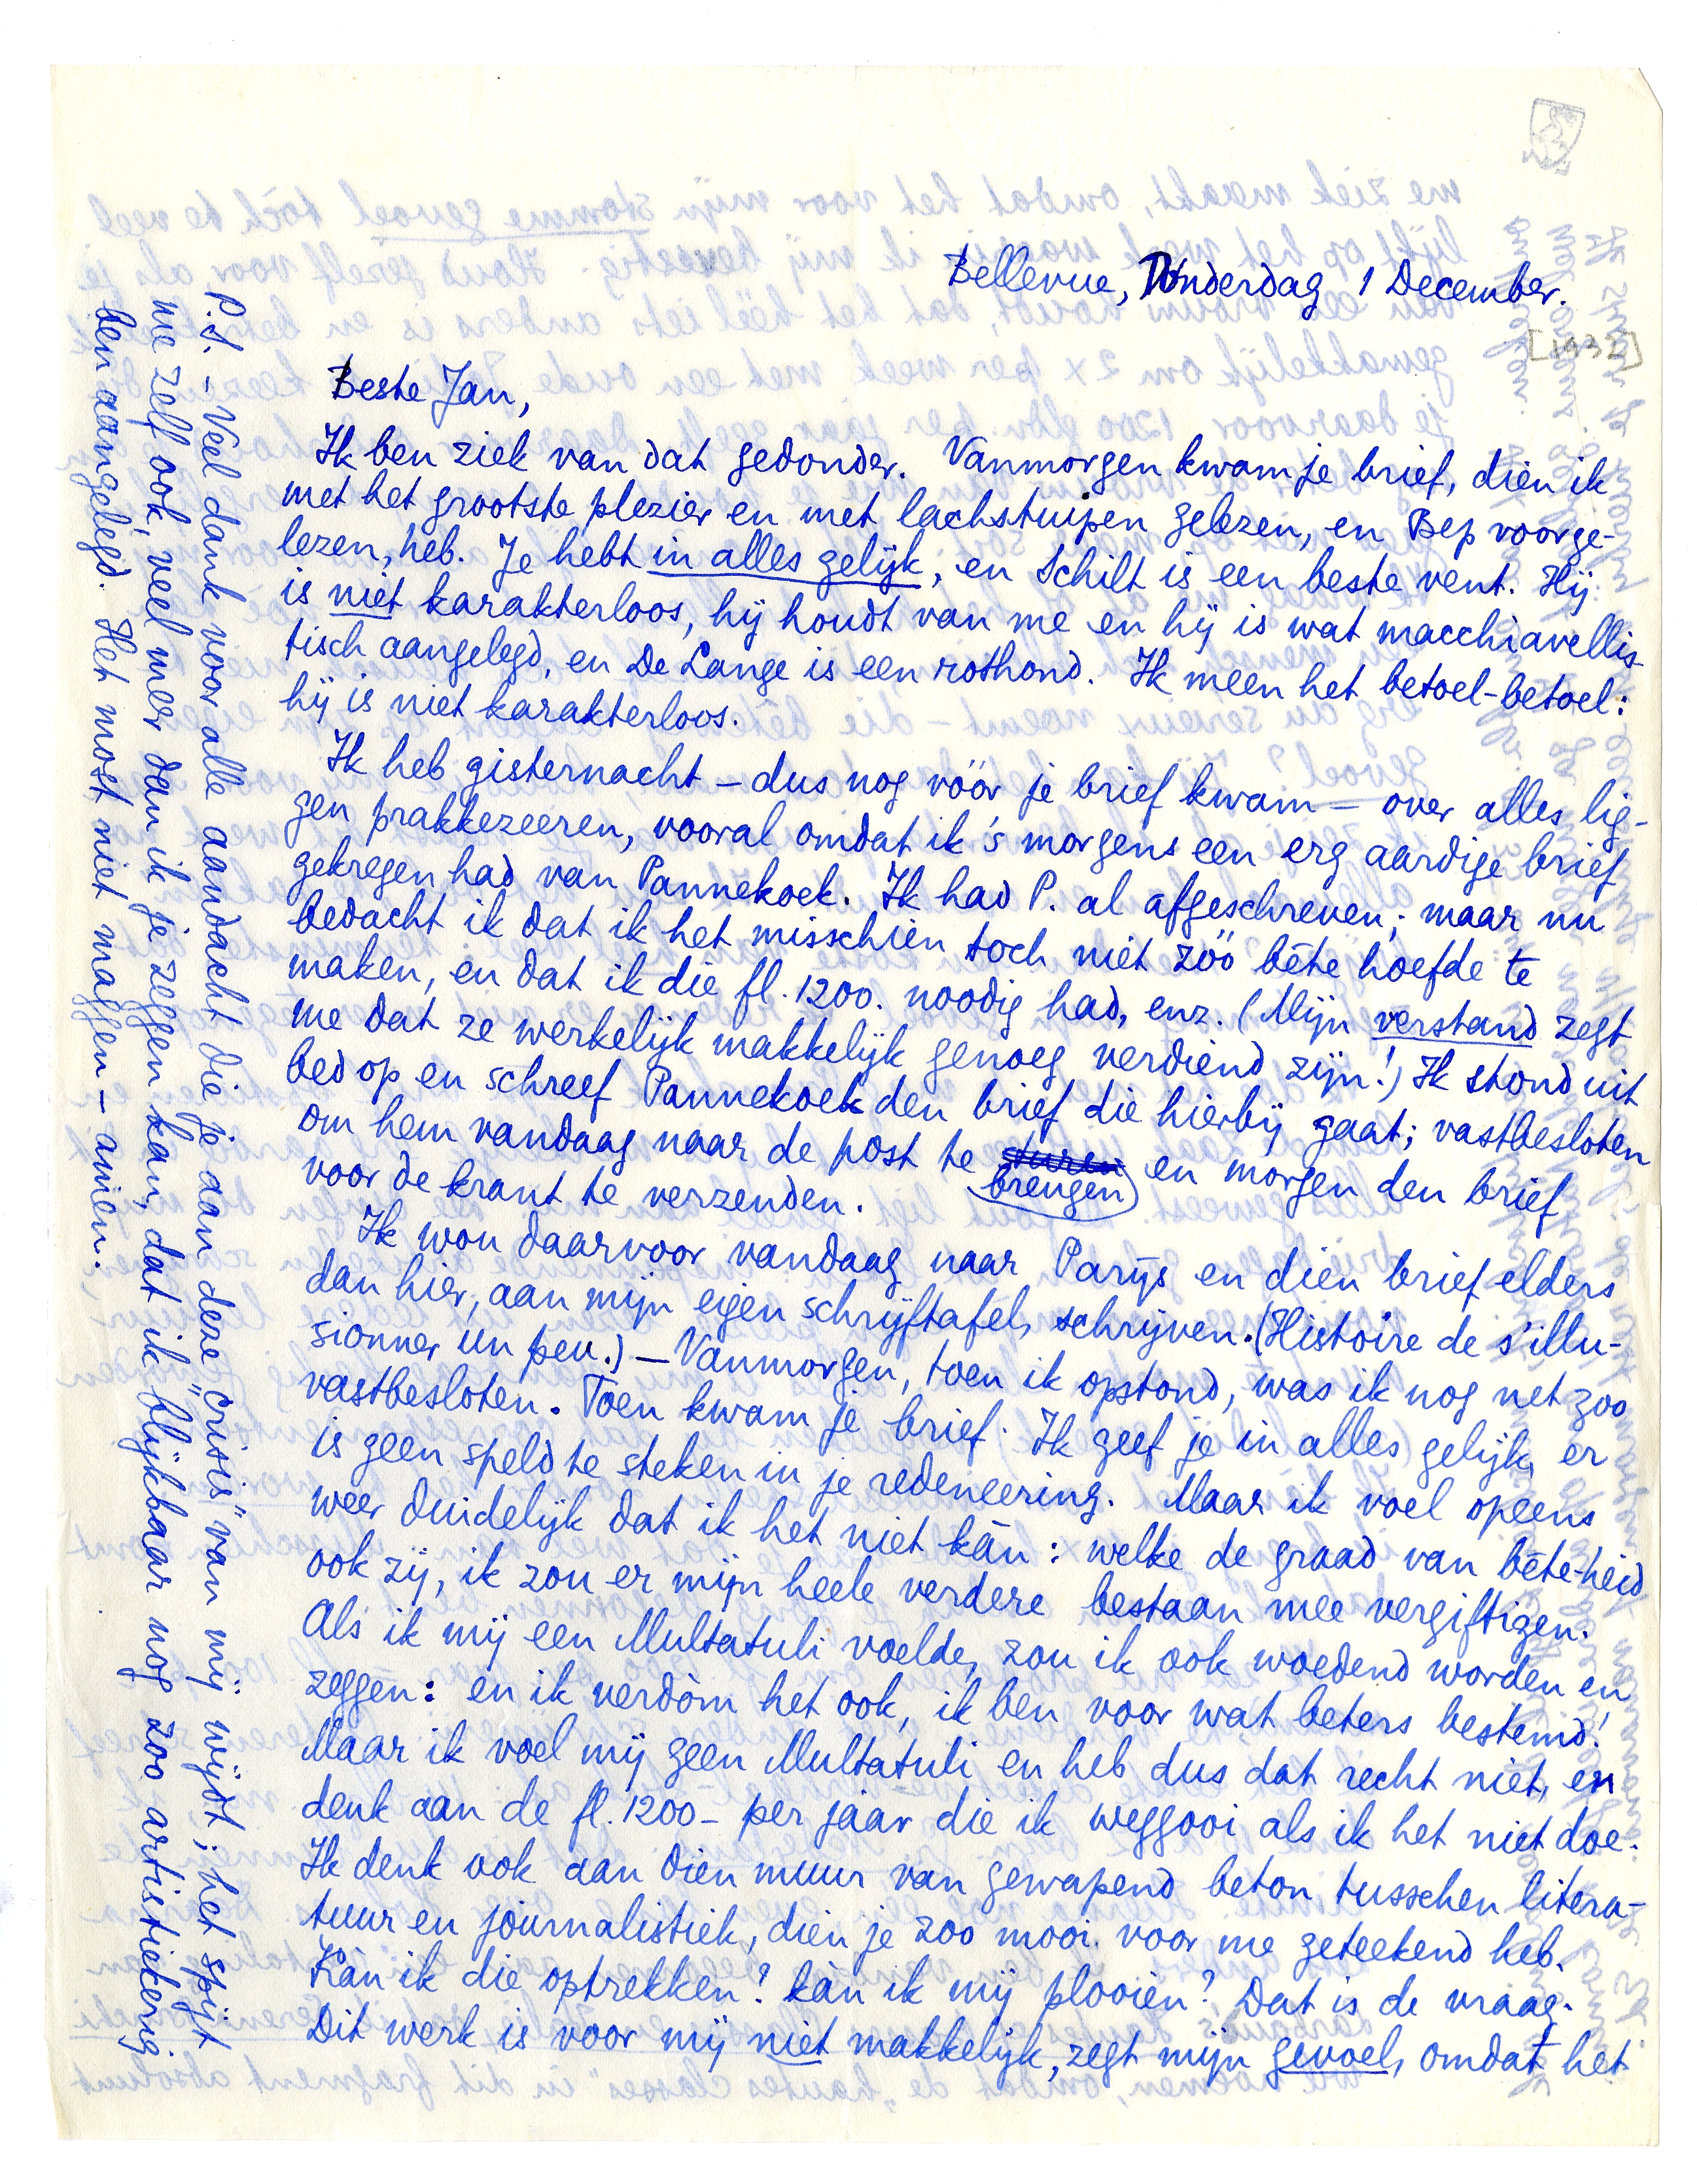 Bellevue, Donderdag 1 December.
[1932]
Beste Jan,
Ik ben ziek van dat gedonder. Vanmorgen kwam je brief, dien ik
met het grootste plezier en met lachstuipen gelezen, en Bep voorge-
lezen, heb. Je hebt in alles gelijk, en Schilt is een beste vent. Hij
is niet karakterloos, hij houdt van me en hij is wat macchiavellis-
tisch aangelegd, en De Lange is een rothond. Ik meen het betoel-betoel:
hij is niet karakterloos.
Ik heb gisternacht – dus nog vóór je brief kwam – over alles lig-
gen prakkezeeren, vooral omdat ik 's morgens een erg aardige brief
gekregen had van Pannekoek. Ik had P. al afgeschreven; maar nu
bedacht ik dat ik het misschien toch niet zóó bête hoefde te
maken, en dat ik die fl. 1200. noodig had, enz. (Mijn verstand zegt
me dat ze werkelijk makkelijk genoeg verdiend zijn!) Ik stond uit
bed op en schreef Pannekoek den brief die hierbij gaat; vastbesloten
om hem vandaag naar de post te sturen brengen en morgen den brief
voor de krant te verzenden.
Ik wou daarvoor vandaag naar Parijs en dien brief elders
dan hier, aan mijn eigen schrijftafel, schrijven. (Histoire de s'illu-
sionner un peu.) – Vanmorgen, toen ik opstond, was ik nog net zoo
vastbesloten. Toen kwam je brief. Ik geef je in alles gelijk, er
is geen speld te steken in je redeneering. Maar ik voel opeens
weer duidelijk dat ik het niet kàn: welke de graad van bête-heid
ook zij, ik zou er mijn heele verdere bestaan mee vergiftigen.
Als ik mij een Multatuli voelde, zou ik ook woedend worden en
zeggen: en ik verdòm het ook, ik ben voor wat beters bestemd!
Maar ik voel mij geen Multatuli en heb dus dat recht niet, en
denk aan de fl. 1200 – per jaar die ik weggooi als ik het niet doe.
Ik denk ook aan dien muur van gewapend beton tusschen litera-
tuur en journalistiek, dien je zoo mooi voor me geteekend heb.
Kàn ik die optrekken? kàn ik mij plooien? Dat is de vraag.
Dit werk is voor mij niet makkelijk, zegt mijn gevoel, omdat het
P.S. – Veel dank voor alle aandacht die je dan deze „crisis" van mij wijdt; het spijt
me zelf ook, veel meer dan ik je zeggen kan, dat ik blijkbaar nog zoo artistiekerig
ben aangelegd. Het most niet maggen – amien.